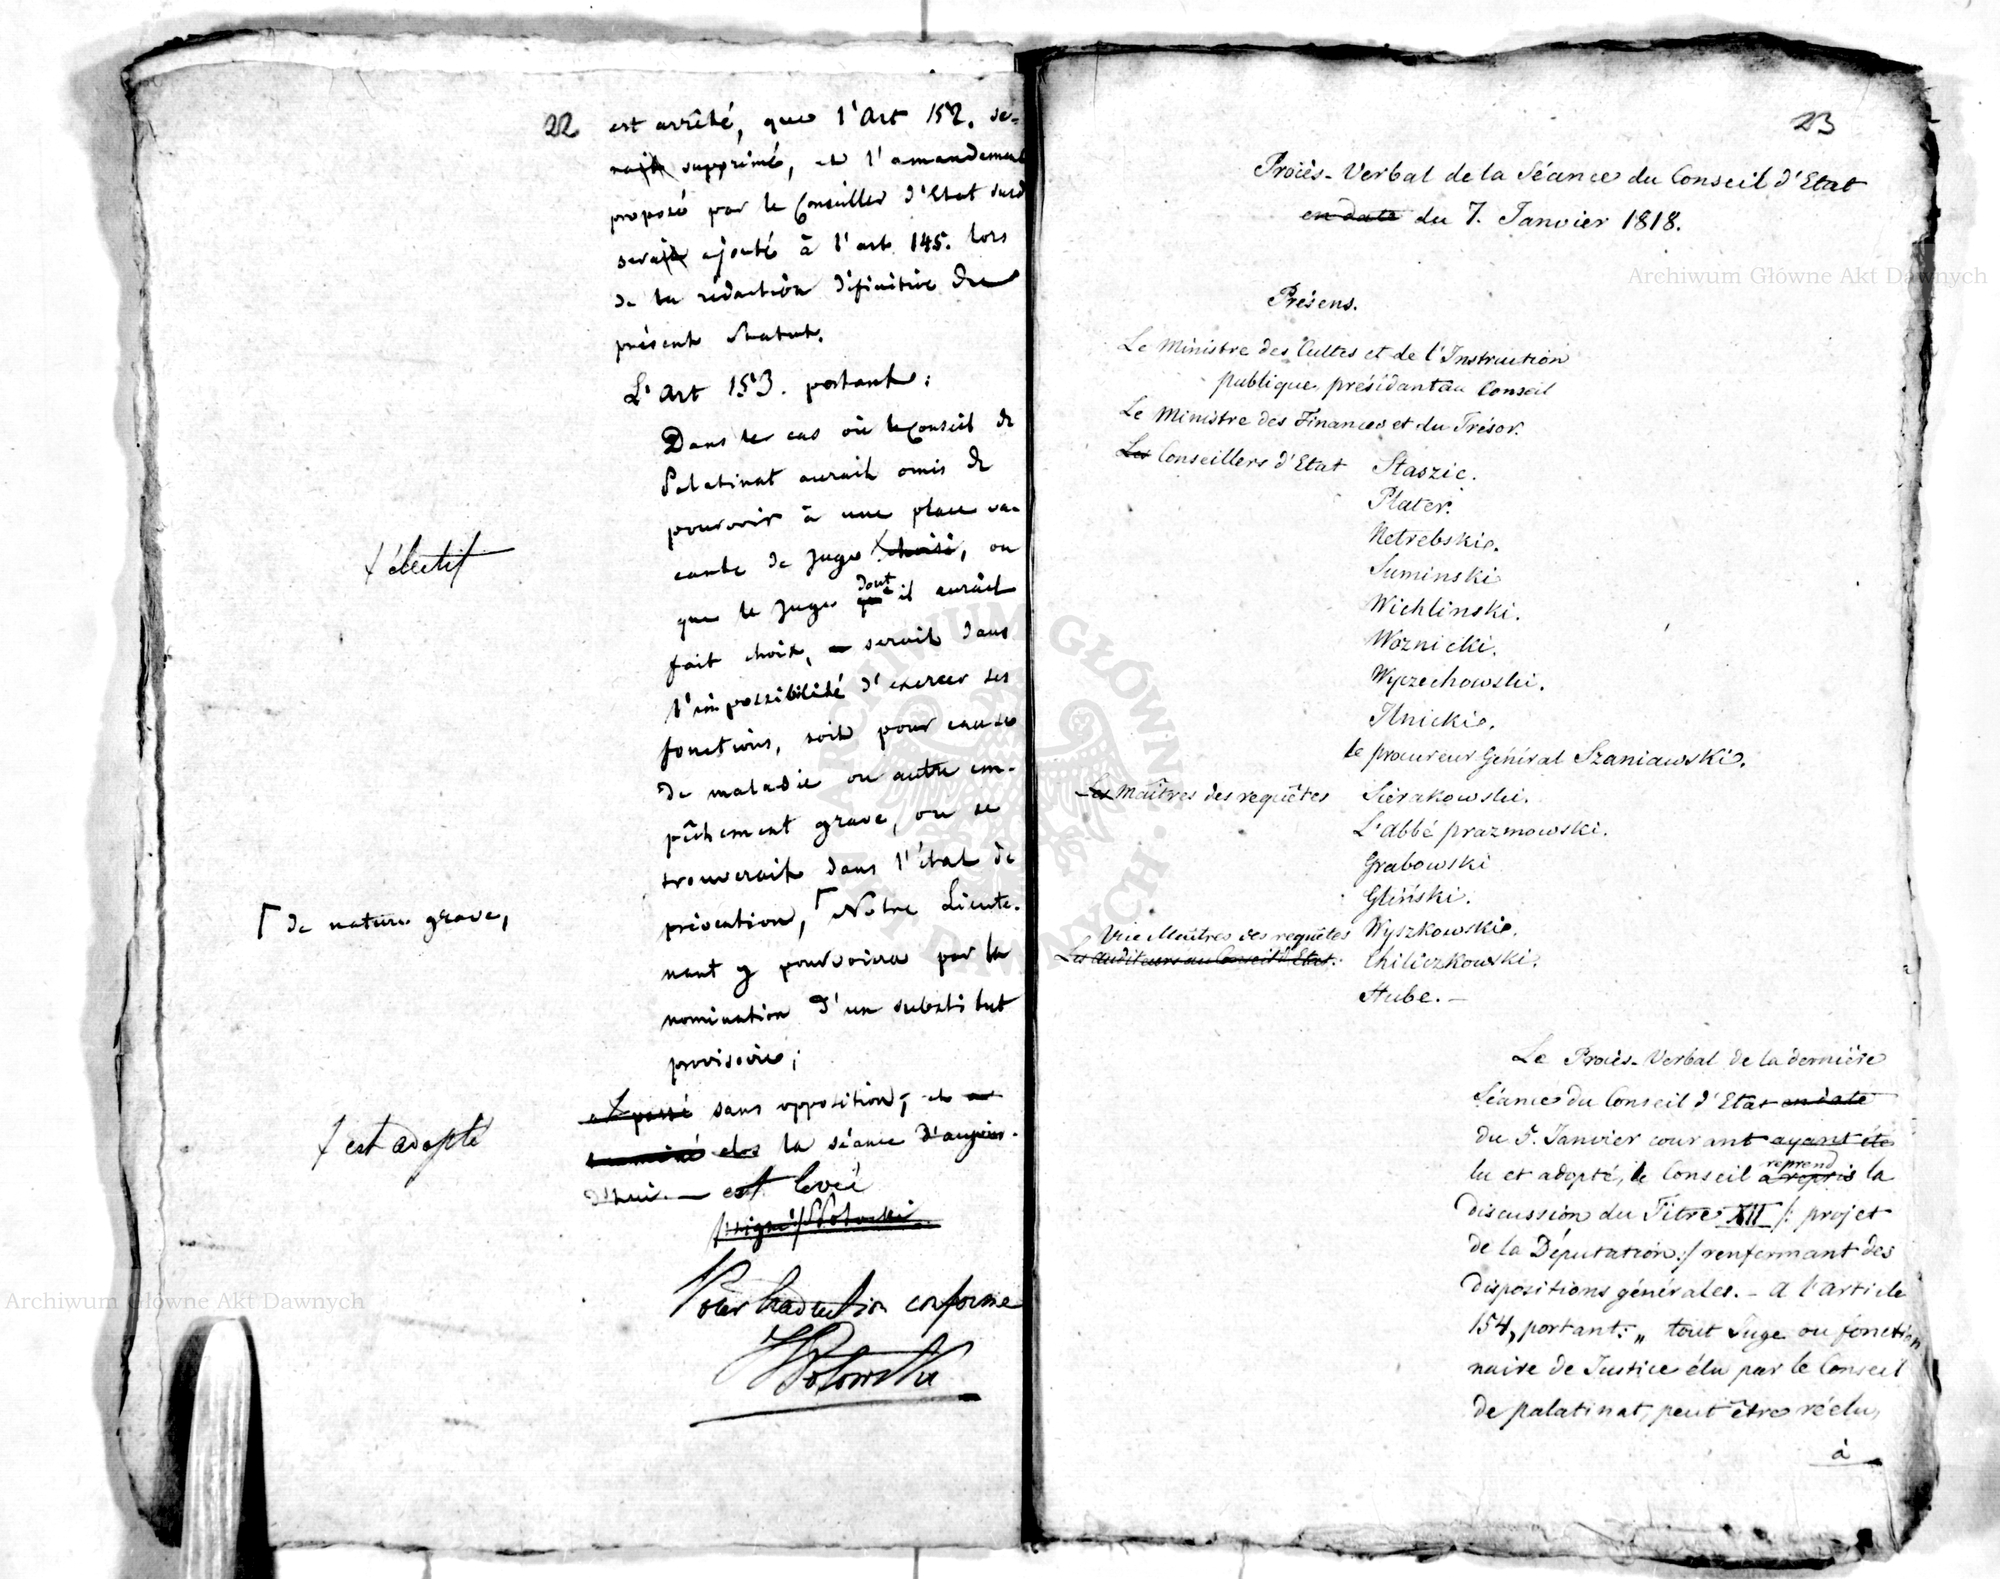 22
est arrêté, que l'Art 152. se-
rait supprimé, et l'amandement
proposé par le Conseiller d'Etat susd
serait ajouté à l'art 145. lors
de la rédaction définitive du
présent Statut.
L'Art 153. portant:
Dans le cas où le Conseil de
Palatinat aurait omis de
pourvoir à une place va-
cante de Juge choisi, ou
ł électif
que le Juge dont il aurait
fait choix, serait dans
l'impossibilité d'exercer ses
fonctions, soit pour cause
de maladie ou autre em-
pêchement grave, ou se
trouverait dans l'état de
prévention, Γ Notre Lieute-
Γ de nature grave,
nant y pourvoira par la
nomination d'un substitut
provisoire;
a passé sans opposition, et a
ł est adopté
terminé la séance d'aujour-
d'hui. — est levée
/signé/ Potocki
Pour traduction conforme
23
Procès-Verbal de la Séance du Conseil d'Etat
en date du 7. Janvier 1818.
Présens.
Le Ministre des Cultes et de l'Instruction
publique, présidant au Conseil
Le Ministre des Finances et du Trésor.
Les Conseillers d'Etat Staszic.
Plater.
Netrebskie.
Suminski
Wichlinski.
Woznicki.
Wyczechowski.
Ilnickie.
le procureur Général Szaniawski.
Les Maîtres des requêtes Sierakowski.
L'abbé prazmowski.
Grabowski
Gliński.
Vice Maîtres des requêtes Wyszkowskie.
Les auditeurs au Conseil d'Etat. Chiliczkowski.
Hube. —
Le Procès-Verbal de la dernière
Séance du Conseil d'Etat en date
du 5. Janvier courant ayant été
lu et adopté, le Conseil a repris reprend la
discussion du Titre XII /: projet
de la Députation :/ renfermant des
dispositions générales. - A l'article
154, portant: „ tout Juge ou fonction
naire de Justice élu par le Conseil
de palatinat, peut être réélu,
à
Archiwum Główne Akt Dawnych
Archiwum Główne Akt Dawnych
ARCHIWUM GŁÓWNE AKT DAWNYCH